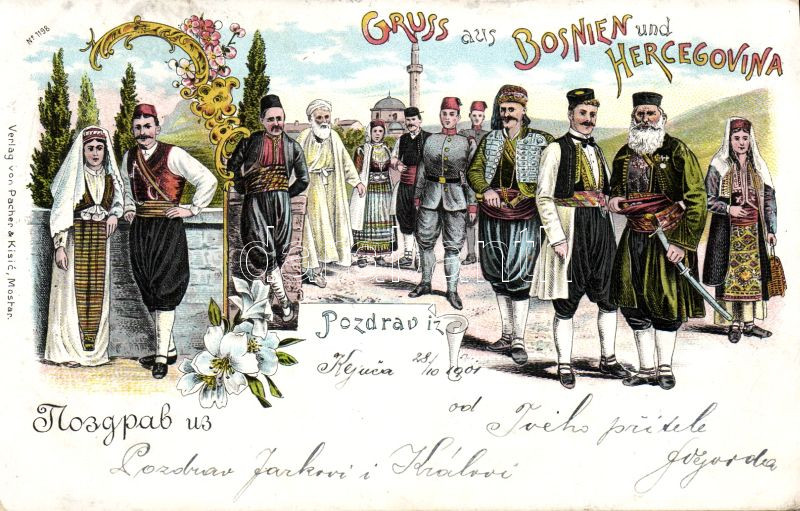 Nº 1198
GRUSS aus BOSNIEN und HERCEGOVINA
Verlag von Pacher & Kisić, Mostar.
Pozdrav iz
28/10 1901
Поздрав из
od Tvého přítele
Pozdrav Jarkovi i Královi